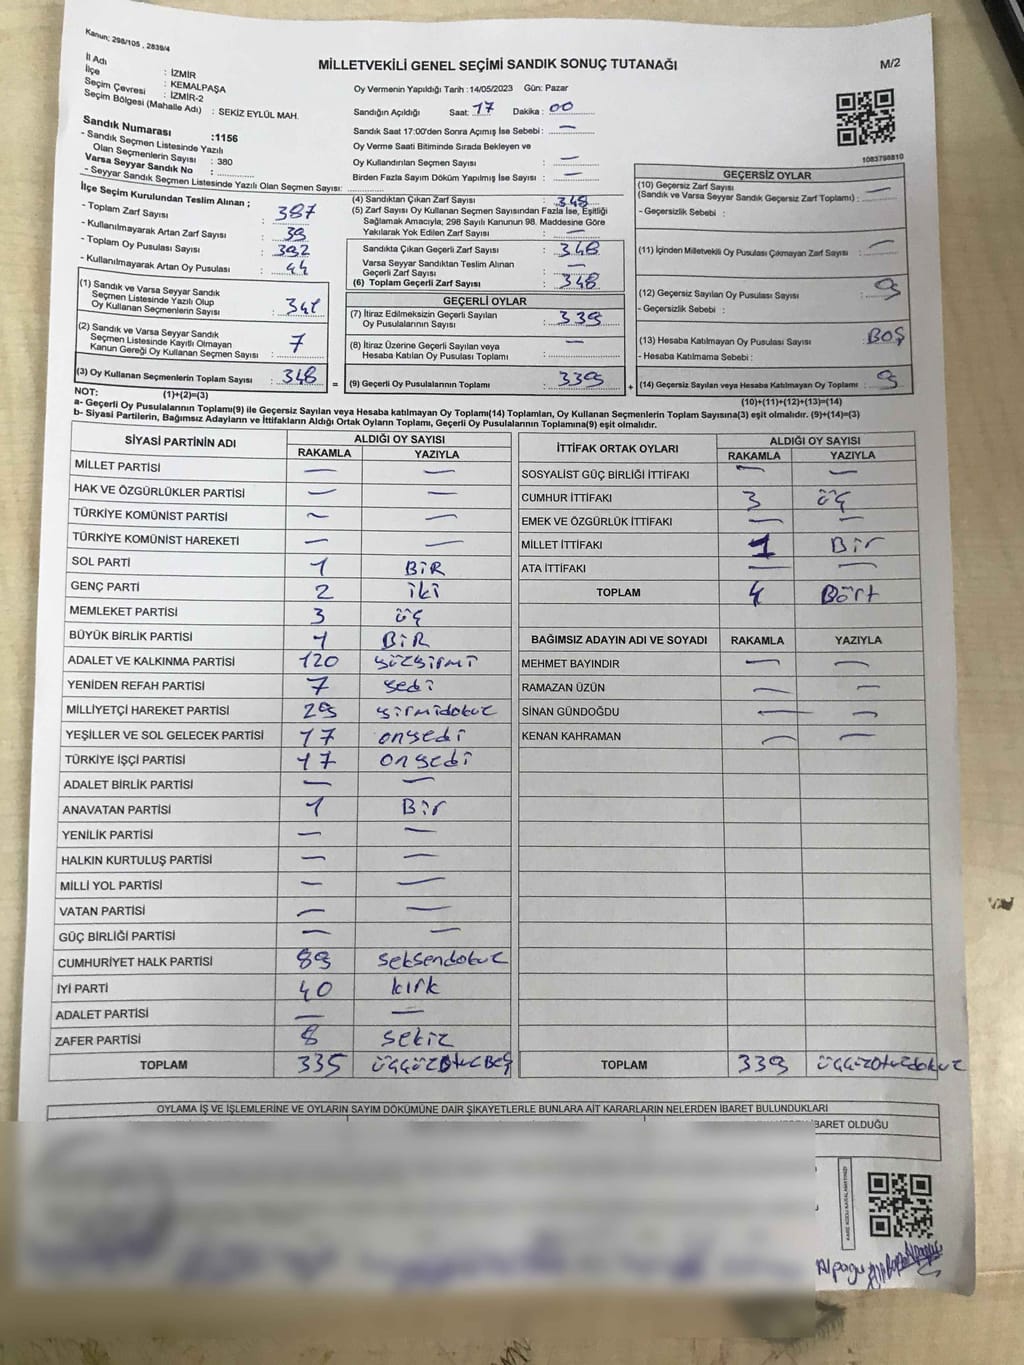 Kanun; 298/105 , 2839/4
MİLLETVEKİLİ GENEL SEÇİMİ SANDIK SONUÇ TUTANAĞI
M/2
İl Adı : İZMİR
İlçe : KEMALPAŞA
Seçim Çevresi : İZMİR-2
Seçim Bölgesi (Mahalle Adı) : SEKİZ EYLÜL MAH.
Oy Vermenin Yapıldığı Tarih :14/05/2023 Gün: Pazar
Sandığın Açıldığı Saat: 17 Dakika : 00
Sandık Saat 17:00'den Sonra Açımış İse Sebebi : —
Oy Verme Saati Bitiminde Sırada Bekleyen ve
Oy Kullandırılan Seçmen Sayısı : —
Birden Fazla Sayım Döküm Yapılmış İse Sayısı : —
1083798810
Sandık Numarası :1156
- Sandık Seçmen Listesinde Yazılı
Olan Seçmenlerin Sayısı : 380
Varsa Seyyar Sandık No :
- Seyyar Sandık Seçmen Listesinde Yazılı Olan Seçmen Sayısı:
İlçe Seçim Kurulundan Teslim Alınan ;
- Toplam Zarf Sayısı : 387
- Kullanılmayarak Artan Zarf Sayısı : 39
- Toplam Oy Pusulası Sayısı : 392
- Kullanılmayarak Artan Oy Pusulası : 44
(1) Sandık ve Varsa Seyyar Sandık
Seçmen Listesinde Yazılı Olup
Oy Kullanan Seçmenlerin Sayısı : 341
(2) Sandık ve Varsa Seyyar Sandık
Seçmen Listesinde Kayıtlı Olmayan
Kanun Gereği Oy Kullanan Seçmen Sayısı : 7
(3) Oy Kullanan Seçmenlerin Toplam Sayısı : 348
(1)+(2)=(3)
(4) Sandıktan Çıkan Zarf Sayısı : 348
(5) Zarf Sayısı Oy Kullanan Seçmen Sayısından Fazla İse, Eşitliği
Sağlamak Amacıyla; 298 Sayılı Kanunun 98. Maddesine Göre
Yakılarak Yok Edilen Zarf Sayısı : —
Sandıkta Çıkan Geçerli Zarf Sayısı : 348
Varsa Seyyar Sandıktan Teslim Alınan
Geçerli Zarf Sayısı : —
(6) Toplam Geçerli Zarf Sayısı : 348
GEÇERLİ OYLAR
(7) İtiraz Edilmeksizin Geçerli Sayılan
Oy Pusulalarının Sayısı : 339
(8) İtiraz Üzerine Geçerli Sayılan veya
Hesaba Katılan Oy Pusulası Toplamı : —
= (9) Geçerli Oy Pusulalarının Toplamı : 339
GEÇERSİZ OYLAR
(10) Geçersiz Zarf Sayısı
(Sandık ve Varsa Seyyar Sandık Geçersiz Zarf Toplamı) : —
- Geçersizlik Sebebi :
(11) İçinden Milletvekili Oy Pusulası Çıkmayan Zarf Sayısı : —
(12) Geçersiz Sayılan Oy Pusulası Sayısı : 9
- Geçersizlik Sebebi :
(13) Hesaba Katılmayan Oy Pusulası Sayısı : BOŞ
- Hesaba Katılmama Sebebi :
+ (14) Geçersiz Sayılan veya Hesaba Katılmayan Oy Toplamı : 9
(10)+(11)+(12)+(13)=(14)
NOT:
a- Geçerli Oy Pusulalarının Toplamı(9) ile Geçersiz Sayılan veya Hesaba katılmayan Oy Toplamı(14) Toplamları, Oy Kullanan Seçmenlerin Toplam Sayısına(3) eşit olmalıdır. (9)+(14)=(3)
b- Siyasi Partilerin, Bağımsız Adayların ve İttifakların Aldığı Ortak Oyların Toplamı, Geçerli Oy Pusulalarının Toplamına(9) eşit olmalıdır.
SİYASİ PARTİNİN ADI ALDIĞI OY SAYISI
RAKAMLA YAZIYLA
MİLLET PARTİSİ — —
HAK VE ÖZGÜRLÜKLER PARTİSİ — —
TÜRKİYE KOMÜNİST PARTİSİ — —
TÜRKİYE KOMÜNİST HAREKETİ — —
SOL PARTİ 1 BİR
GENÇ PARTİ 2 iki
MEMLEKET PARTİSİ 3 üç
BÜYÜK BİRLİK PARTİSİ 1 BİR
ADALET VE KALKINMA PARTİSİ 120 yüzyirmi
YENİDEN REFAH PARTİSİ 7 yedi
MİLLİYETÇİ HAREKET PARTİSİ 29 yirmidokuz
YEŞİLLER VE SOL GELECEK PARTİSİ 17 onyedi
TÜRKİYE İŞÇİ PARTİSİ 17 onyedi
ADALET BİRLİK PARTİSİ — —
ANAVATAN PARTİSİ 1 Bir
YENİLİK PARTİSİ — —
HALKIN KURTULUŞ PARTİSİ — —
MİLLİ YOL PARTİSİ — —
VATAN PARTİSİ — —
GÜÇ BİRLİĞİ PARTİSİ — —
CUMHURİYET HALK PARTİSİ 89 seksendokuz
İYİ PARTİ 40 kırk
ADALET PARTİSİ — —
ZAFER PARTİSİ 8 sekiz
TOPLAM 335 üççüzOtuzBeş
İTTİFAK ORTAK OYLARI ALDIĞI OY SAYISI
RAKAMLA YAZIYLA
SOSYALİST GÜÇ BİRLİĞİ İTTİFAKI — —
CUMHUR İTTİFAKI 3 üç
EMEK VE ÖZGÜRLÜK İTTİFAKI — —
MİLLET İTTİFAKI 1 Bir
ATA İTTİFAKI — —
TOPLAM 4 Dört
BAĞIMSIZ ADAYIN ADI VE SOYADI RAKAMLA YAZIYLA
MEHMET BAYINDIR — —
RAMAZAN ÜZÜN — —
SİNAN GÜNDOĞDU — —
KENAN KAHRAMAN — —
TOPLAM 339 üççüzOtuzdokuz
OYLAMA İŞ VE İŞLEMLERİNE VE OYLARIN SAYIM DÖKÜMÜNE DAİR ŞİKAYETLERLE BUNLARA AİT KARARLARIN NELERDEN İBARET BULUNDUKLARI
BARET OLDUĞU
Alpagu